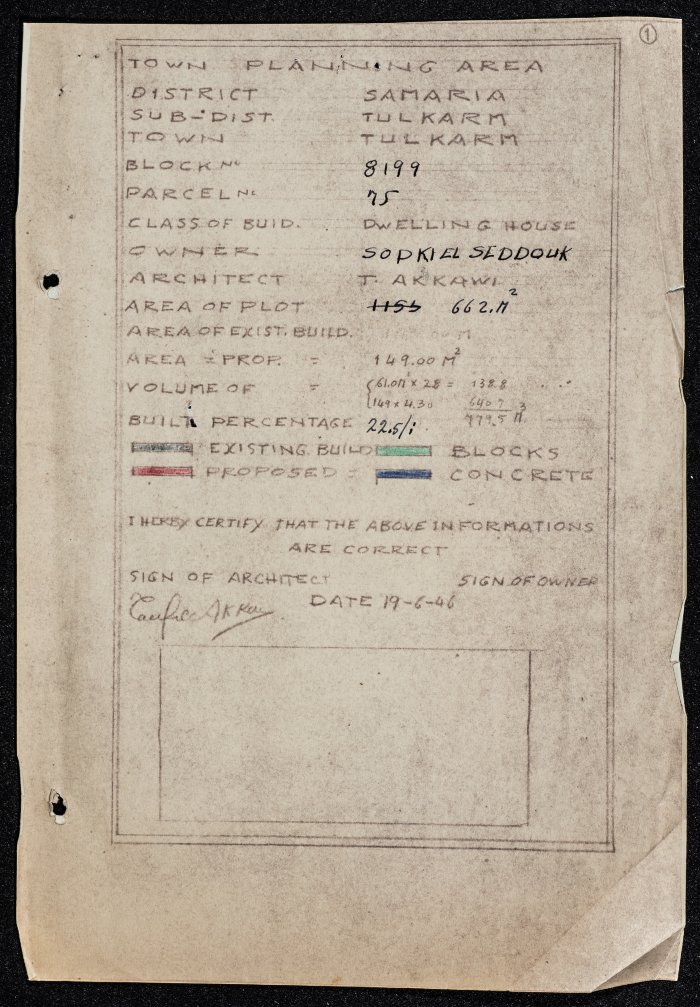 ①
TOWN PLANNING AREA
DISTRICT SAMARIA
SUB-DIST. TULKARM
TOWN TULKARM
BLOCK Nº 8199
PARCEL Nº 75
CLASS OF BUID. DWELLING HOUSE
OWNER SOPKIEL SEDDOUK
ARCHITECT T. AKKAWI
AREA OF PLOT 1155 662.M²
AREA OF EXIST. BUILD. M
AREA = PROP. = 149.00 M²
VOLUME OF = 61.0M² x 2.8 = 138.8
149 x 4.30 640.7
779.5 M³
BUILT PERCENTAGE 22.5/.
EXISTING BUILD BLOCKS
PROPOSED = CONCRETE
I HERBY CERTIFY THAT THE ABOVE INFORMATIONS
ARE CORRECT
SIGN OF ARCHITECT SIGN OF OWNER
DATE 19-6-46